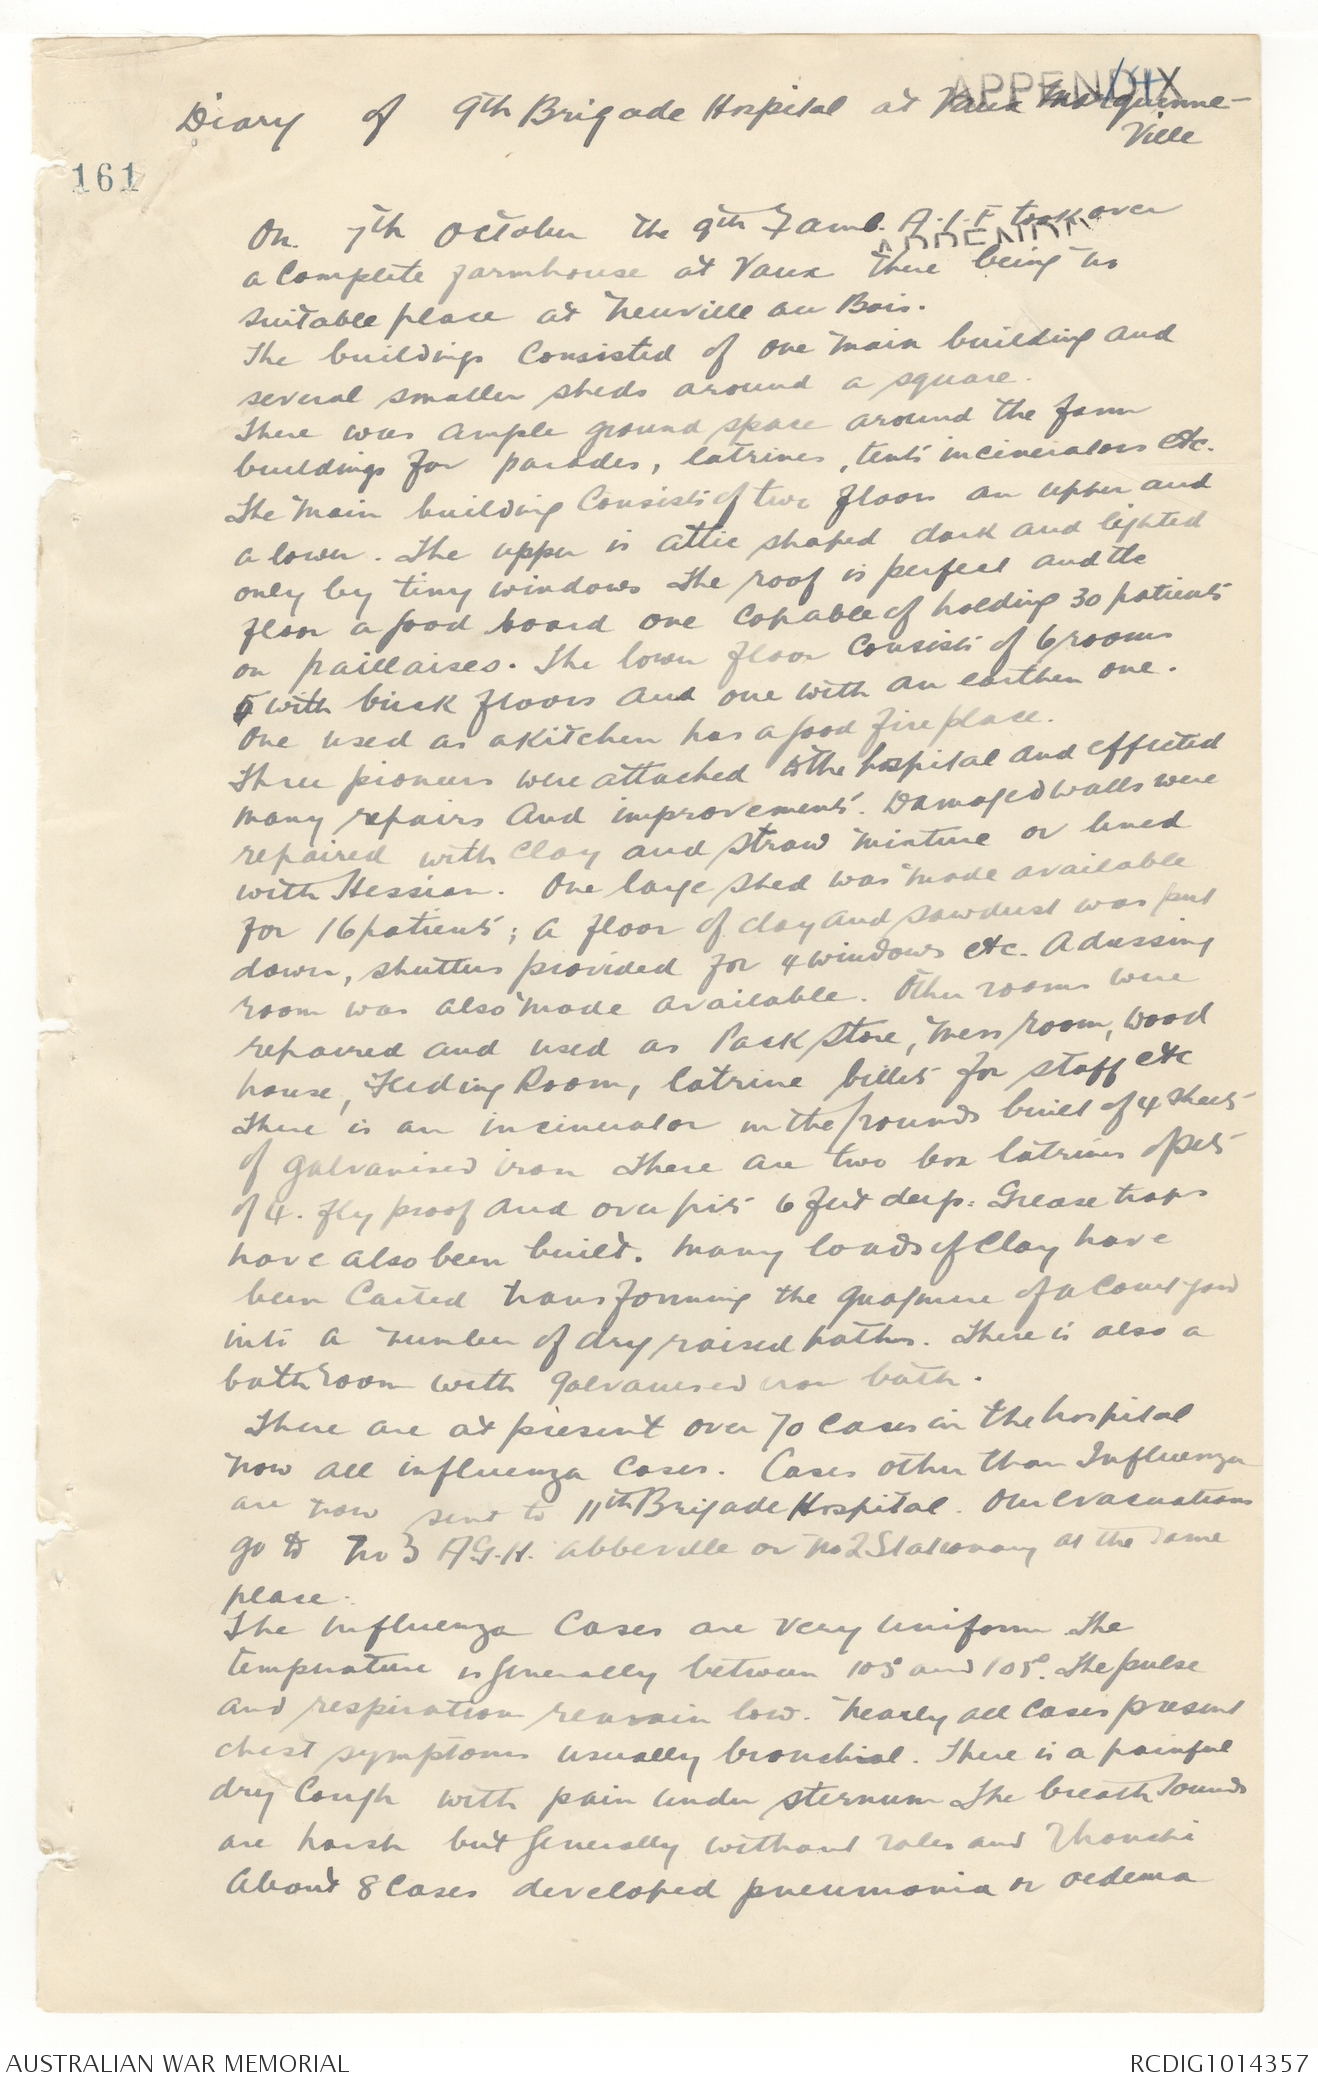 APPENDIX
Diary of 9th Brigade Hospital at Vaux Marquenne-
Ville
161
On 7th October the 9th F amb. A.I.F took over
APPENDIX
a complete farmhouse at Vaux there being no
suitable place at Neuville au Bois.
The buildings Consisted of one main building and
several smaller sheds around a square.
There was ample ground space around the farm
buildings for parades, latrines, tents incinerators etc.
The main building Consists of two floors an upper and
a lower. The upper is attic shaped dark and lighted
only by tiny windows The roof is perfect and the
floor a good board one capable of holding 30 patients
on paillaises. The lower floor consists of 6 rooms
5 with brick floors and one with an earthen one.
One used as a kitchen has a good fireplace.
Three pioneers were attached to the hospital and effected
many repairs and improvements. Damaged walls were
repaired with clay and straw mixture or lined
with Hessian. One large shed was made available
for 16 patients; a floor of clay and sawdust was put
down, shutters provided for 4 windows etc. A dressing
room was also made available. Other rooms were
repaired and used as Pack Store, Mess room, wood
house, Feeding Room, latrine billets for staff etc
There is an incinerator in the grounds built of 4 sheets
of galvanised iron There are two box latrines
of 4. fly proof and over pits 6 feet deep. Grease traps
have also been built. Many loads of Clay have
been Carted transforming the quagmire of a Court yard
into a number of dry raised paths. There is also a
bathroom with galvanised iron bath.
There are at present over 70 cases in the hospital
now all influenza cases. Cases other than Influenza
are now sent to 11th Brigade Hospital. Our evacuations
go to No 3 A.G.H. abbeville or No 2 Stationary at the same
place.
The Influenza Cases are very uniform The
temperature is generally between 103 and 105°. The pulse
and respiration remain low. Nearly all cases present
chest symptoms usually bronchial. There is a painful
dry Cough with pain under sternum The breath sounds
are harsh but generally without rales and Rhonchi
About 8 Cases developed pneumonia or oedema
AUSTRALIAN WAR MEMORIAL
RCDIG1014357